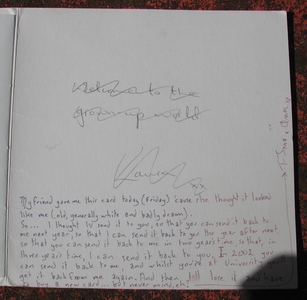 Welcome to the
grown-up world!
Karen xx
My friend gave me this card today (Friday) 'cause she thought it looked
like me (old, generally white and badly drawn).
So... I thought I'd send it to you, so that you can send it back to
me next year, so that I can send it back to you the year after next
so that you can send it back to me in two years time so that, in
three years time, I can send it back to you, In 2002, you
can send it back to me, and whilst you're at University
get it back from me again. And then I'll lose it and have
to buy a new card. but never mind, eh?